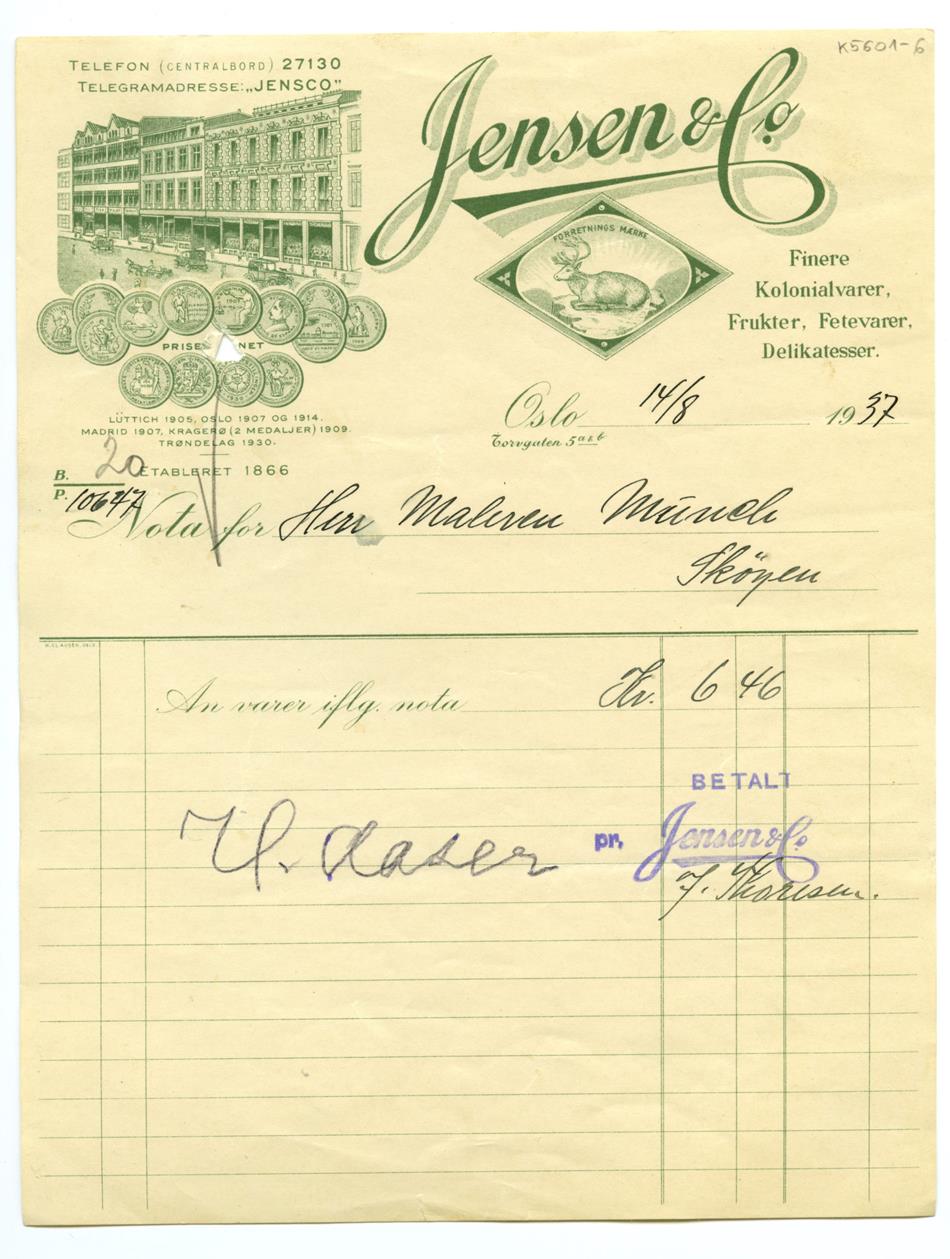 K5601-6
TELEFON (CENTRALBORD) 27130
TELEGRAMADRESSE: „JENSCO"
Jensen & Co.
FORRETNINGS MÆRKE
Finere
Kolonialvarer,
Frukter, Fetevarer,
Delikatesser.
PRISE NET
LÜTTICH 1905, OSLO 1907 OG 1914.
MADRID 1907, KRAGERØ (2 MEDALJER) 1909.
TRØNDELAG 1930.
ETABLERET 1866
Oslo 14/8 1937
Torvgaten 5 a & b
B. 20
P. 10647
Nota for Herr Maleren Münch
Sköyen
An varer iflg. nota Kr. 6 46
BETALT
pr. Jensen & Co.
J. Thoresen.